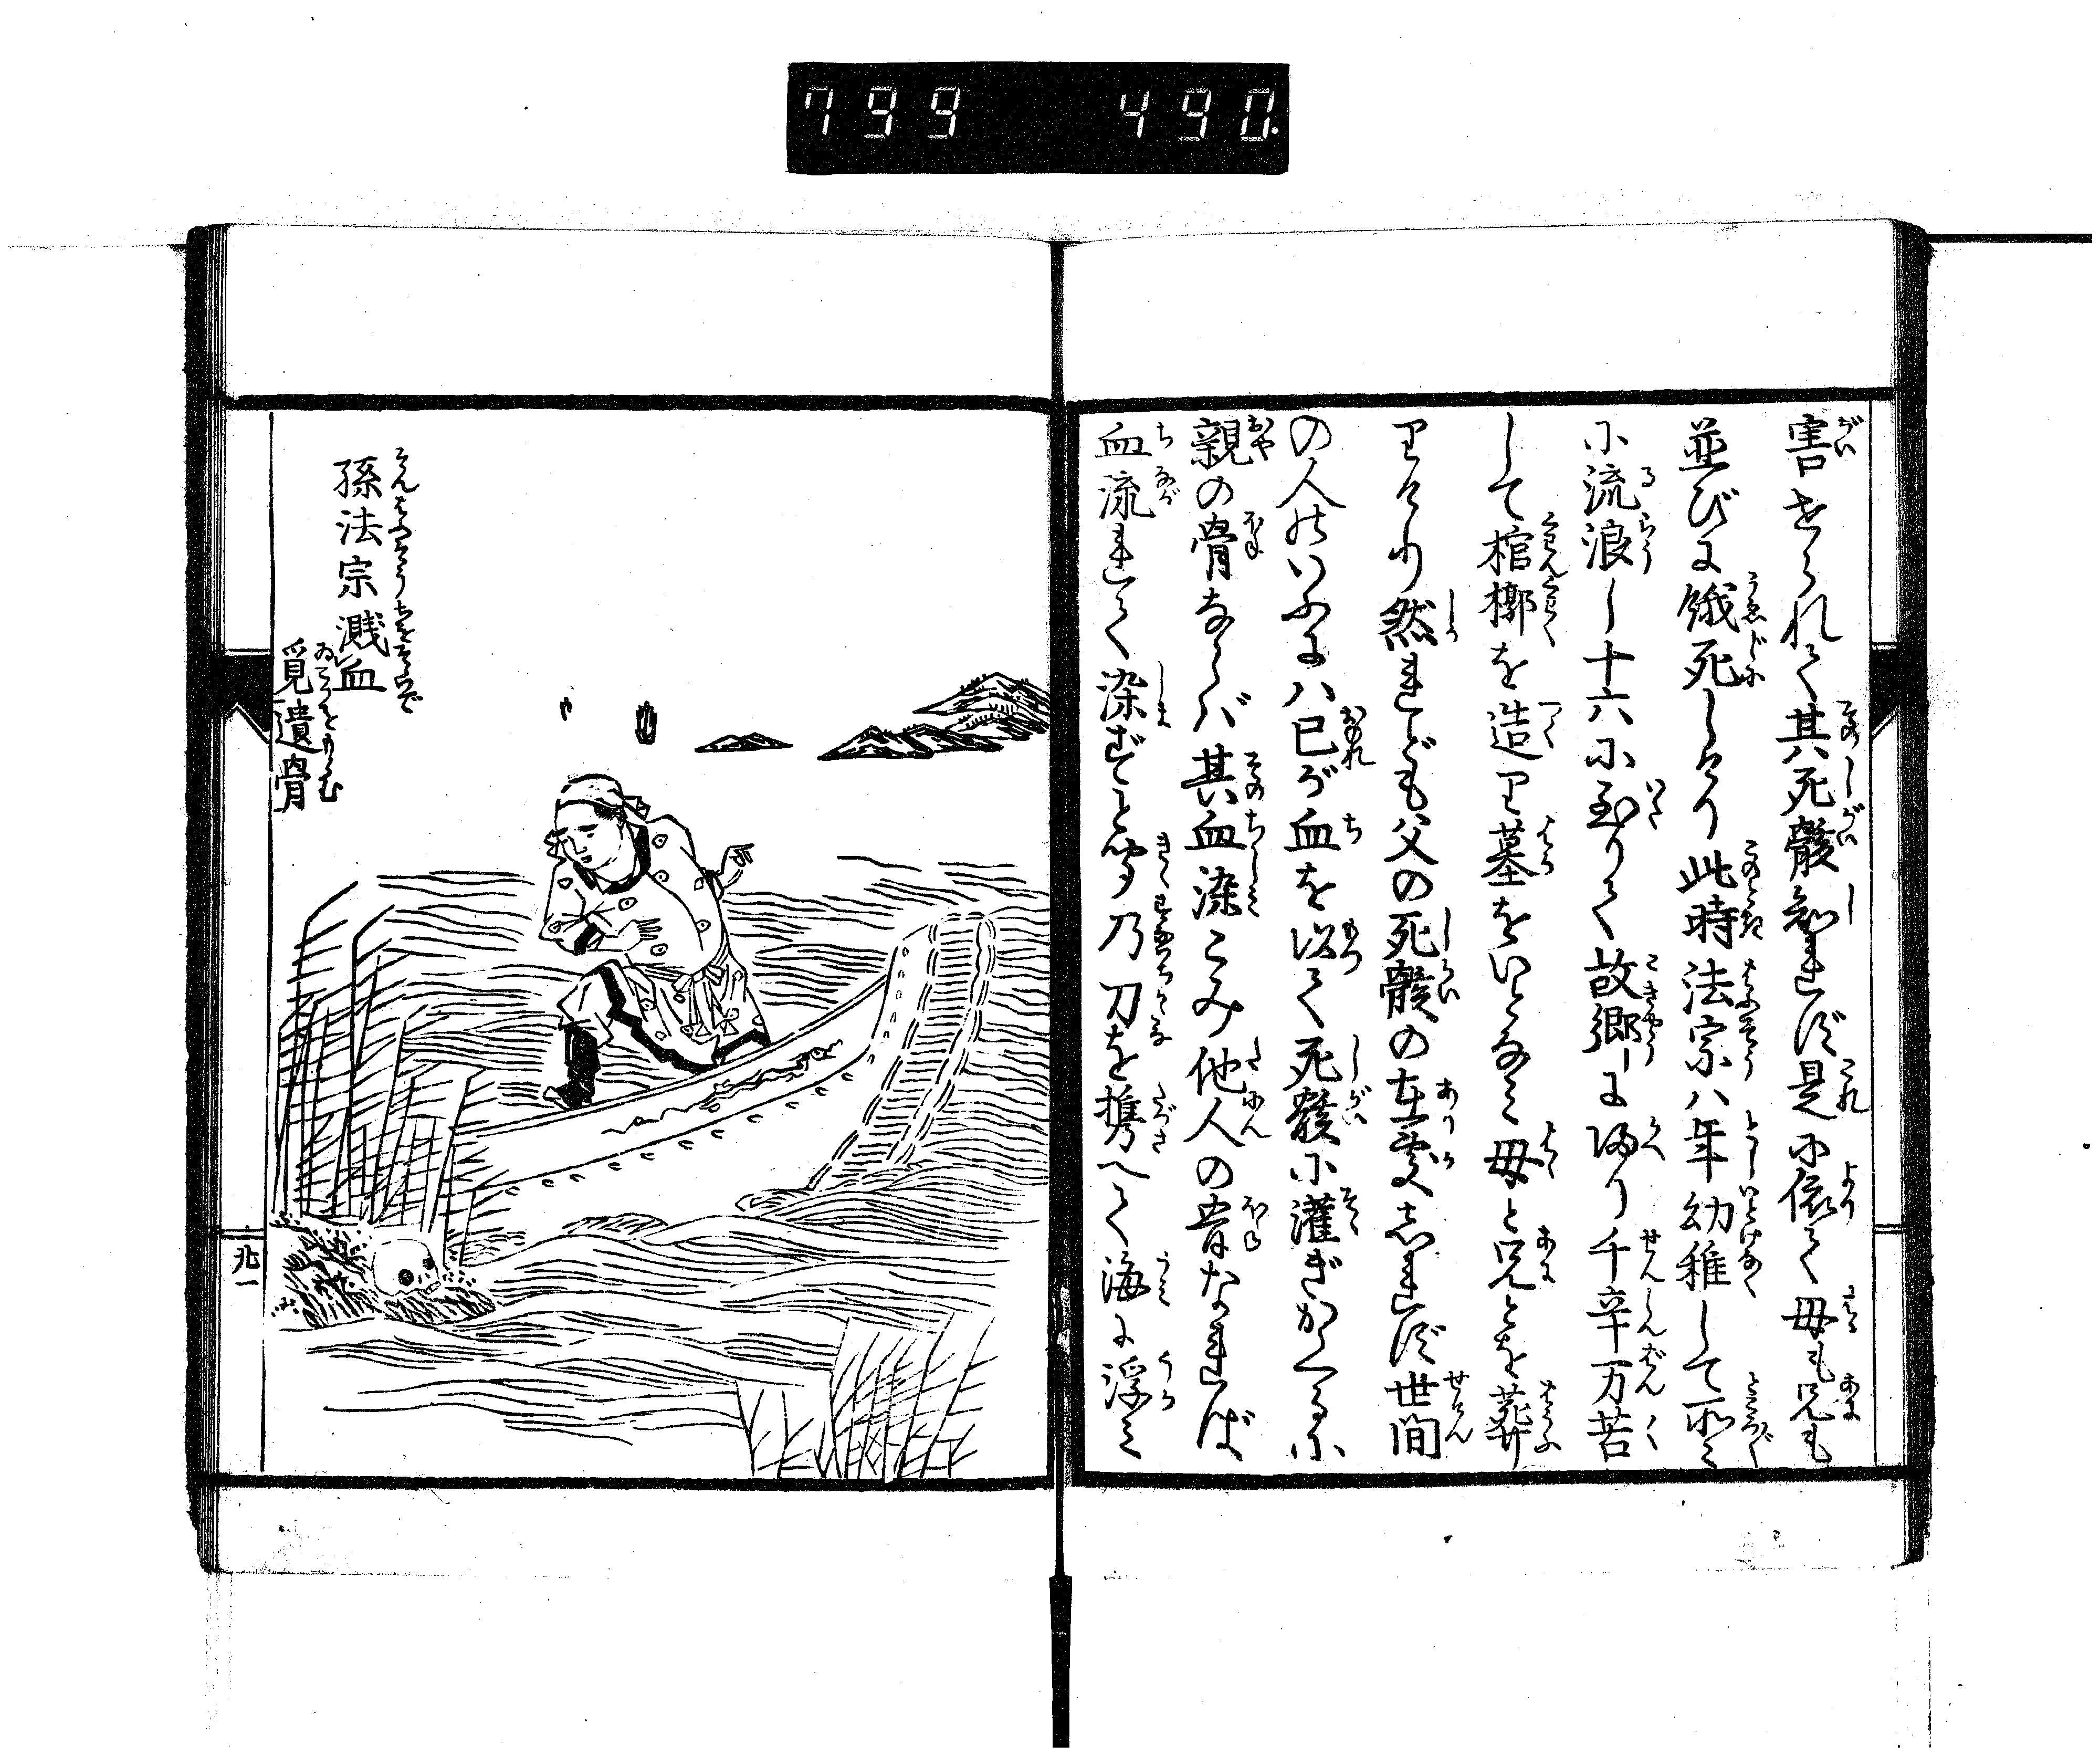 799 490
害せられて其死骸知れず是に依て母も兄も
並びに餓死しけり此時法宗八年幼稚して所々
に流浪し十六に至りて故郷に帰り千辛万苦
して棺槨を造り墓をいとなみ母と兄とを葬
りけり然れども父の死骸の在処しれず世間
の人のいふには己が血を以て死骸に灌ぎかくるに
親の骨ならば其血染こみ他人の骨なれば
血流れて染ずと聞乃刀を携へて海に浮み
孫法宗濺血
覓遺骨